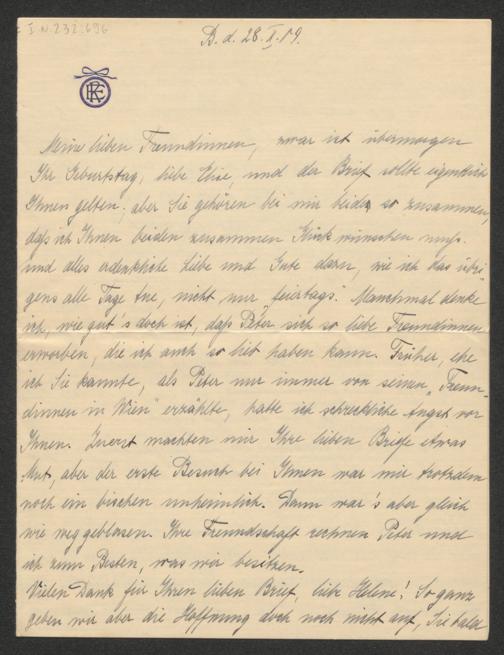 I.N.232.696
B. d. 28. X. 09.
Meine lieben Freundinnen, zwar ist übermorgen
Ihr Geburtstag, liebe Elise, und der Brief sollte eigentlich
Ihnen gelten; aber Sie gehören bei mir beide so zusammen,
daß ich Ihnen beiden zusammen Glück wünschen muß.
und alles erdenkliche Liebe und Gute dazu, wie ich das übri-
gens alle Tage tue, nicht nur „feiertags". Manchmal denke
ich, wie gut's doch ist, daß Peter sich so liebe Freundinnen
erworben, die ich auch so lieb haben kann. Früher, ehe
ich Sie kannte, als Peter nur immer von seinen „Freun-
dinnen in Wien" erzählte, hatte ich schreckliche Angst vor
Ihnen. Zuerst machten mir Ihre lieben Briefe etwas
Mut, aber der erste Besuch bei Ihnen war mir trotzdem
noch ein bischen unheimlich. Dann war's aber gleich
wie weggeblasen. Ihre Freundschaft rechnen Peter und
ich zum Besten, was wir besitzen.
Vielen Dank für Ihren lieben Brief, liebe Helene! So ganz
geben wir aber die Hoffnung doch noch nicht auf, Sie bald